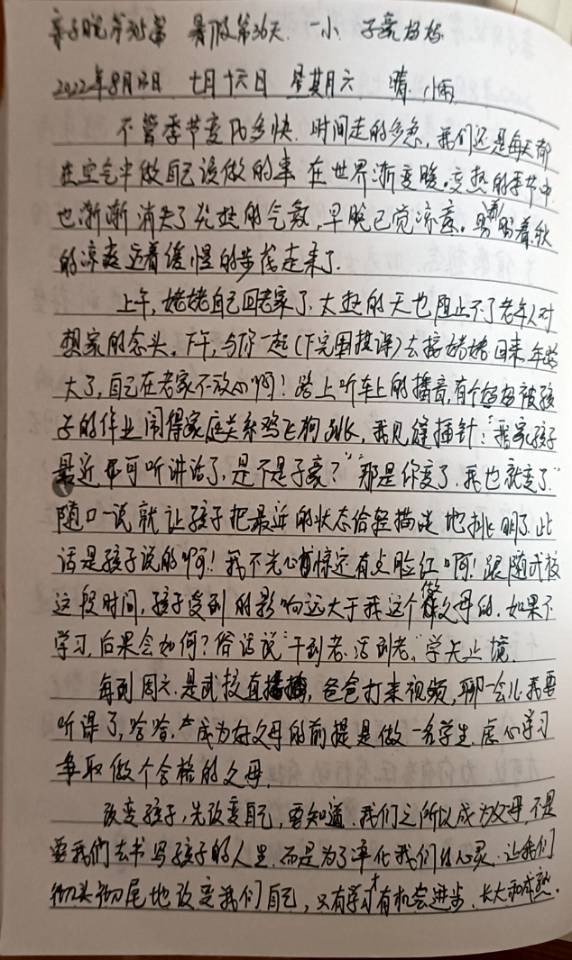 亲子日记第 篇 暑假第36天 一小 子豪妈妈
2022年8月13日 七月十六日 星期六 晴 小雨
不管季节变化多快，时间走的多急，我们还是每天都
在空气中做自己该做的事 在世界渐变暖。变热的季节中
也渐渐消失了炎热的气数，早晚已觉凉意。 着秋
的凉爽迈着缓慢的步伐走来了.
上午，姥姥自己回老家了，太热的天也阻止不了老年人对
想家的念头。下午，与你一起(下完围棋课)去接姥姥回来，年龄
大了，自己在老家不放心啊！路上听车上的播音，有个妈妈被孩
子的作业闹得家庭关系鸡飞狗跳，我见缝插针："我家孩子
最近 可听讲话了，是不是子豪？""那是你变了，我也就变了"
随口一说就让孩子把最近的状态给轻描淡地挑明了.此
话是孩子说的啊！我不光心惊还有点脸红啊！跟随武校
这段时间，孩子受到的影响远大于我这个做父母的. 如果不
学习，后果会如何？俗话说"干到老.活到老"，学无止境.
每到周六.是武校直播 ，爸爸打来视频，聊一会儿我要
听课了，哈哈. 成为好父母的前提是做一名学生.虚心学习
争取做个合格的父母.
改变孩子，先改变自己，要知道.我们之所以成为父母，不是
要我们去书写孩子的人生.而是为了净化我们的心灵.让我们
彻头彻尾地改变我们自己，只有学习才有机会进步、长大和成熟.